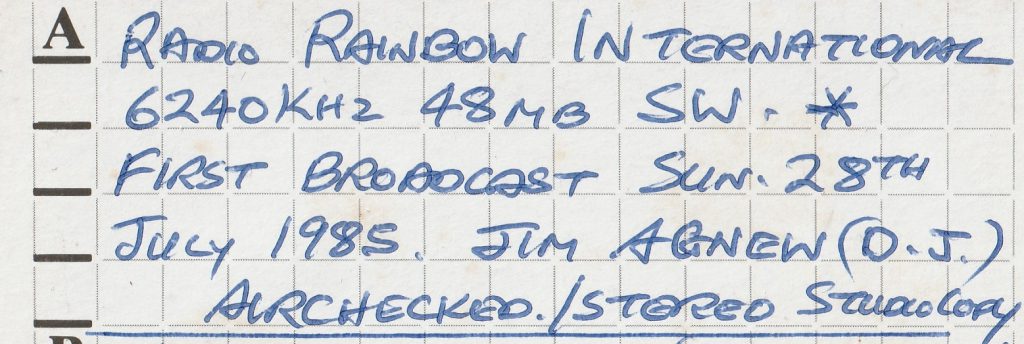 A RADIO RAINBOW INTERNATIONAL
6240KHz 48MB SW. *
FIRST BROADCAST SUN. 28TH
JULY 1985. JIM AGNEW (D.J.)
AIRCHECKED./STEREO STUDIO COPY